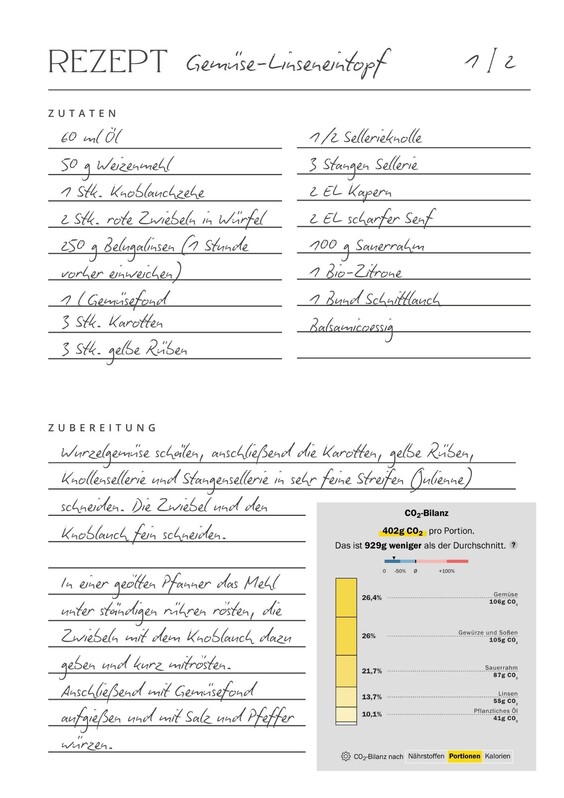 REZEPT Gemüse-Linseneintopf 1/2
ZUTATEN
60 ml Öl
50 g Weizenmehl
1 Stk. Knoblauchzehe
2 Stk. rote Zwiebeln in Würfel
250 g Belugalinsen (1 Stunde
vorher einweichen)
1 l Gemüsefond
3 Stk. Karotten
3 Stk. gelbe Rüben
1/2 Sellerieknolle
3 Stangen Sellerie
2 EL Kapern
2 EL scharfer Senf
100 g Sauerrahm
1 Bio-Zitrone
1 Bund Schnittlauch
Balsamicoessig
ZUBEREITUNG
Wurzelgemüse schälen, anschließend die Karotten, gelbe Rüben,
Knollensellerie und Stangensellerie in sehr feine Streifen (Julienne)
schneiden. Die Zwiebel und den
Knoblauch fein schneiden.
In einer geölten Pfanner das Mehl
unter ständigen rühren rösten, die
Zwiebeln mit dem Knoblauch dazu
geben und kurz mitrösten.
Anschließend mit Gemüsefond
aufgießen und mit Salz und Pfeffer
würzen.
CO₂-Bilanz
402g CO₂ pro Portion.
Das ist 929g weniger als der Durchschnitt. ?
0 -50% Ø +100%
26,4% Gemüse
106g CO₂
26% Gewürze und Soßen
105g CO₂
21,7% Sauerrahm
87g CO₂
13,7% Linsen
55g CO₂
10,1% Pflanzliches Öl
41g CO₂
CO₂-Bilanz nach Nährstoffen Portionen Kalorien